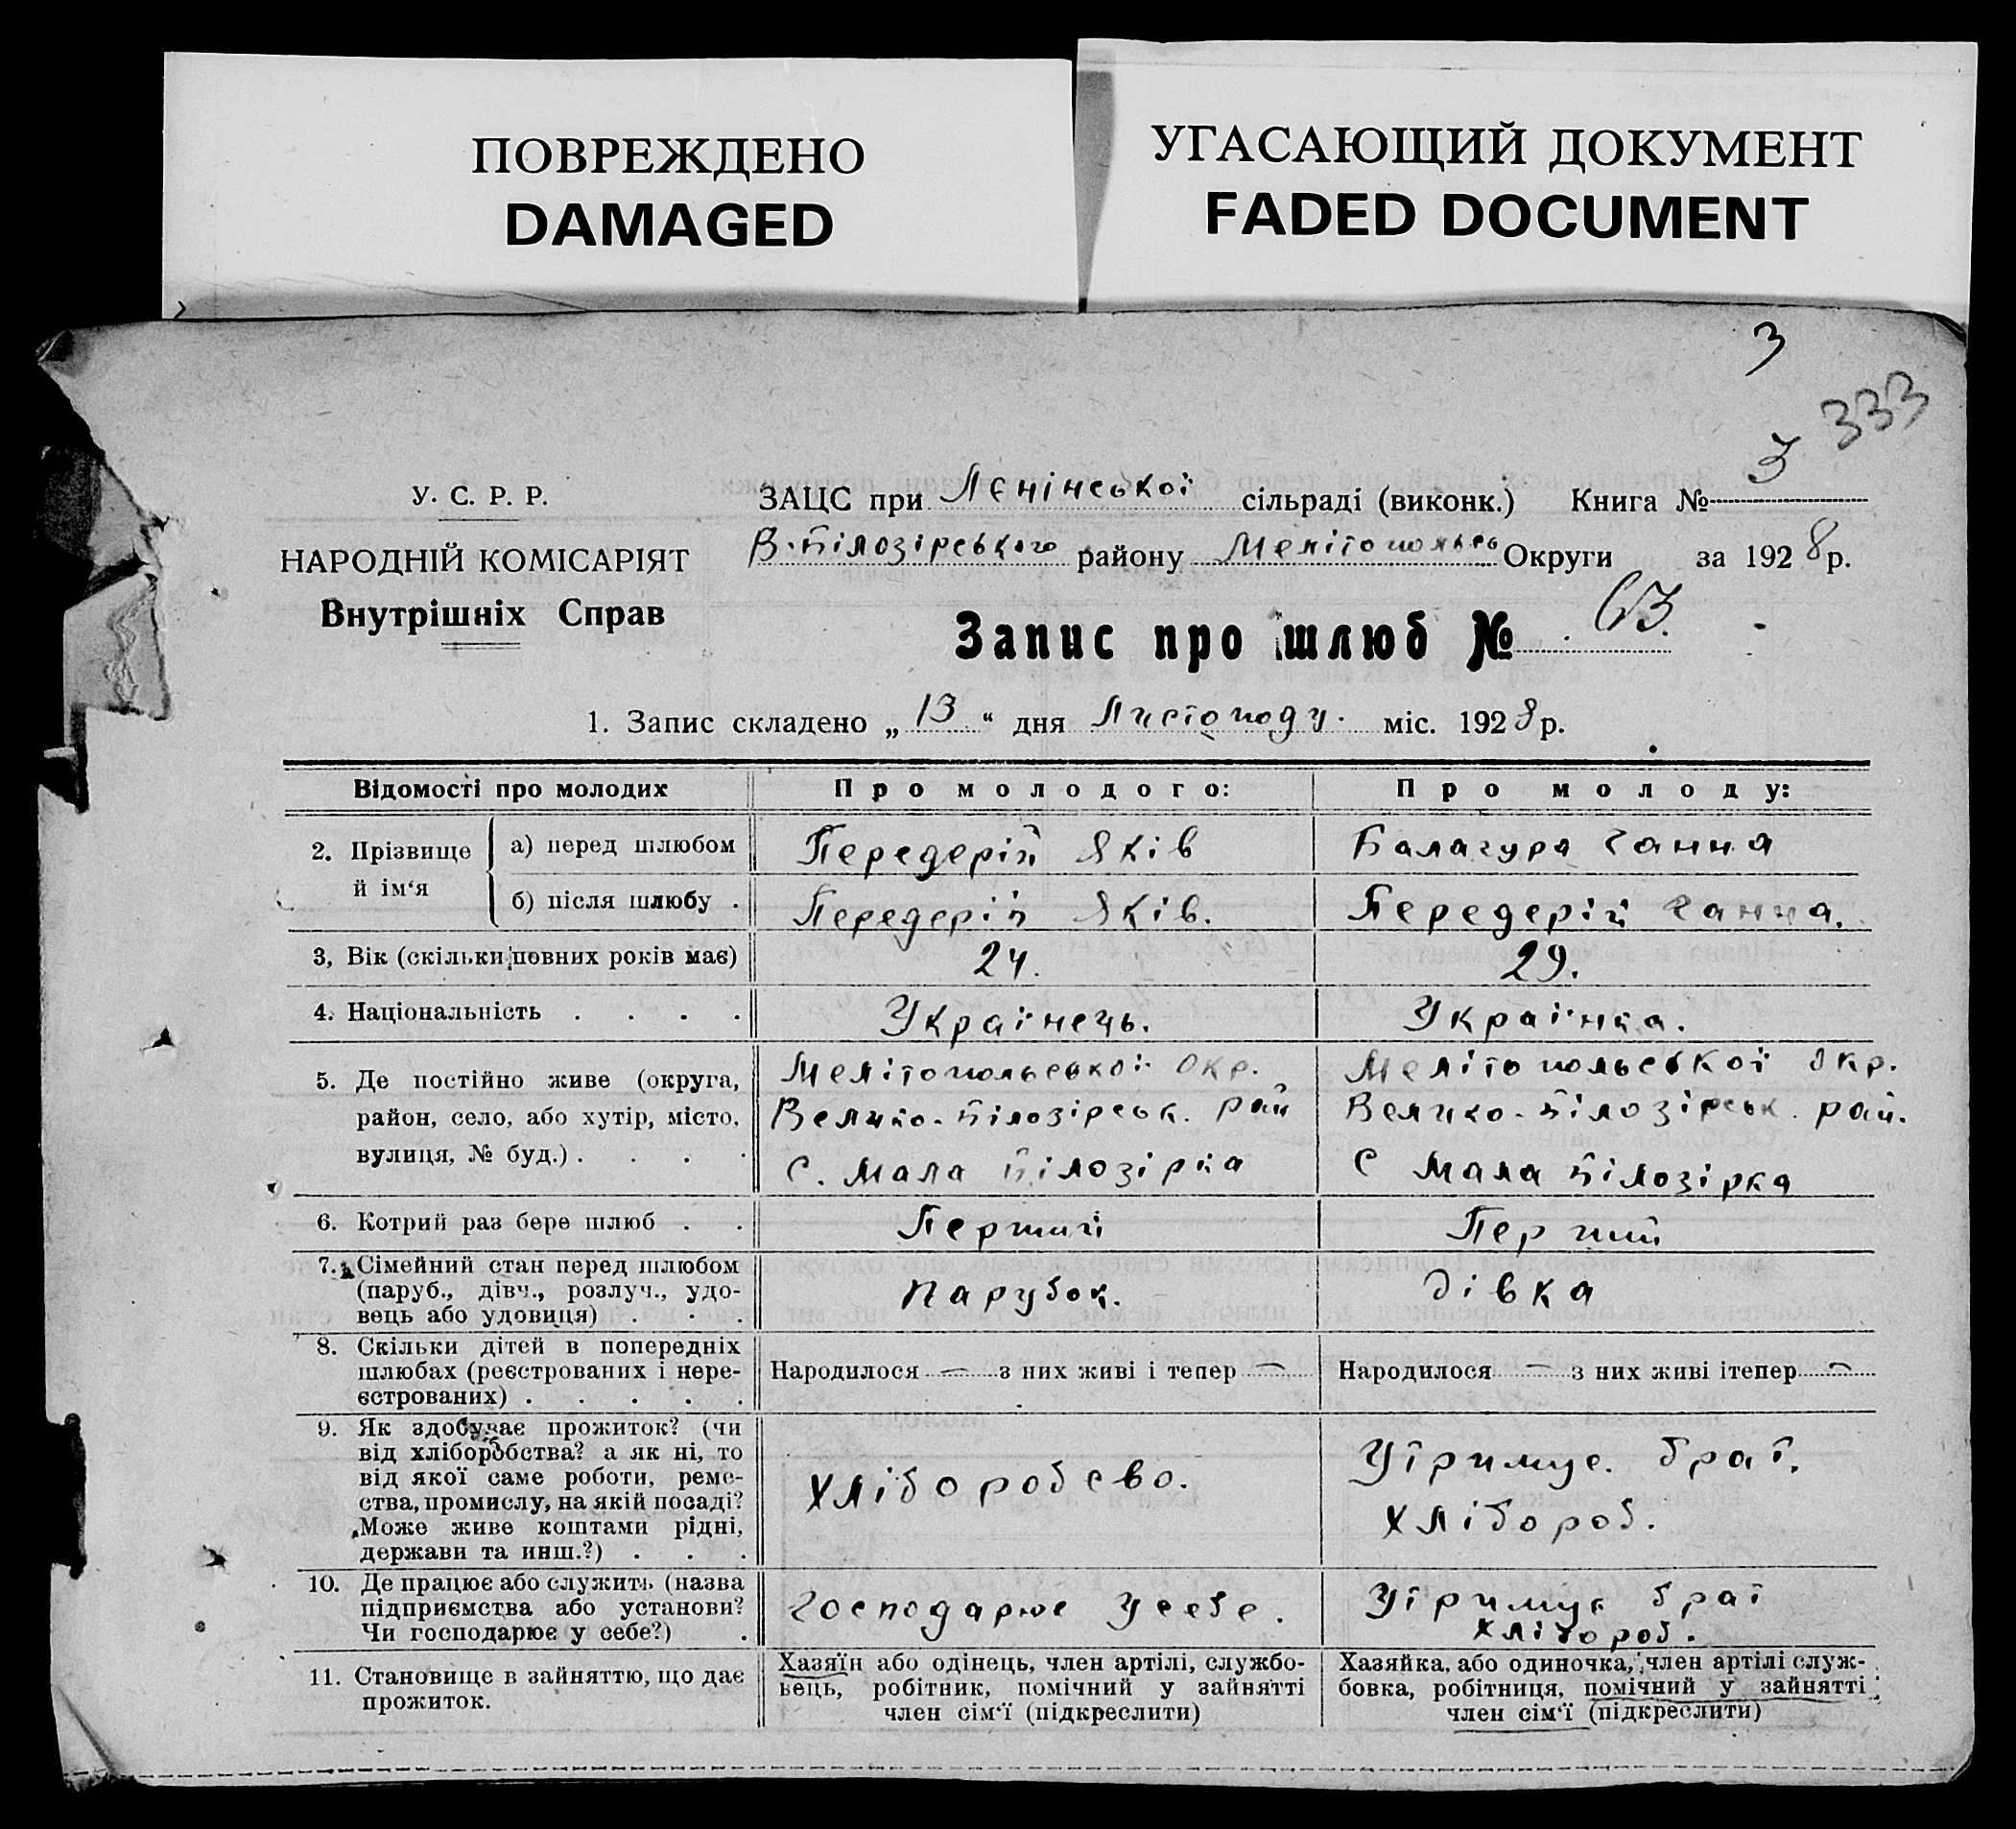 ПОВРЕЖДЕНО
DAMAGED
УГАСАЮЩИЙ ДОКУМЕНТ
FADED DOCUMENT
3
333
У. С. Р. Р.
НАРОДНІЙ КОМІСАРІЯТ
Внутрішніх Справ
ЗАЦС при Лєнінської сільраді (виконк.) Книга № 3
В-Білозірського району Мелітопольсь Округи за 1928 р.
Запис про шлюб № 63.
1. Запис складено „13“ дня Листопаду міс. 1928 р.
Відомості про молодих Про молодого: Про молоду:
2. Прізвище й ім‘я
а) перед шлюбом Передерій Яків Балагура Ганна
б) після шлюбу . Передерій Яків. Передерій Ганна.
3, Вік (скільки повних років має) 24. 29.
4. Національність . . . . Українець. Українка.
5. Де постійно живе (округа,
район, село, або хутір, місто,
вулиця, № буд.) . . . .
Мелітопольської Окр.
Велико-Білозірськ. рай
С. Мала Білозірка
Мелітопольської Окр.
Велико-Білозірськ. рай.
С Мала Білозірка
6. Котрий раз бере шлюб . . Перший Перший
7. Сімейний стан перед шлюбом
(паруб., дівч., розлуч., удо-
вець або удовиця) . . .
Парубок.
дівка
8. Скільки дітей в попередніх
шлюбах (реєстрованих і нере-
єстрованих) . . . . .
Народилося — з них живі і тепер —
Народилося — з них живі ітепер —
9. Як здобуває прожиток? (чи
від хліборобства? а як ні, то
від якої саме роботи, реме-
ства, промислу, на якій посаді?
Може живе коштами рідні,
держави та инш.?) . . .
Хліборобсво.
Утримує. брат.
Хлібороб.
10. Де працює або служить (назва
підприємства або установи?
Чи господарює у себе?) .
Господарює Усебе.
Утримує брат
Хлібороб.
11. Становище в зайняттю, що дає
прожиток.
Хазяїн або одінець, член артілі, службо-
вець, робітник, помічний у зайнятті
член сім‘ї (підкреслити)
Хазяйка, або одиночка, член артілі служ-
бовка, робітниця, помічний у зайнятті
член сім‘ї (підкреслити)